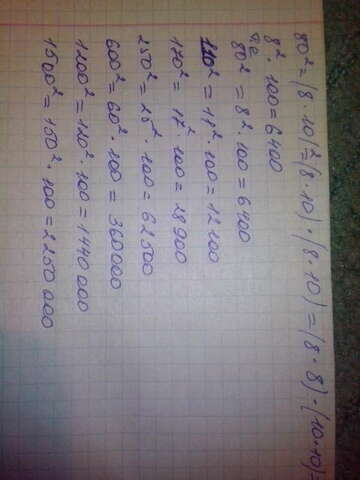 80² = (8 · 10)² = (8 · 10) · (8 · 10) = (8 · 8) · (10 · 10) =
8² · 100 = 6400
80² = 8² · 100 = 6400
110² = 11² · 100 = 12100
170² = 17² · 100 = 28900
250² = 25² · 100 = 62500
600² = 60² · 100 = 360000
1200² = 120² · 100 = 1440000
1500² = 150² · 100 = 2250000